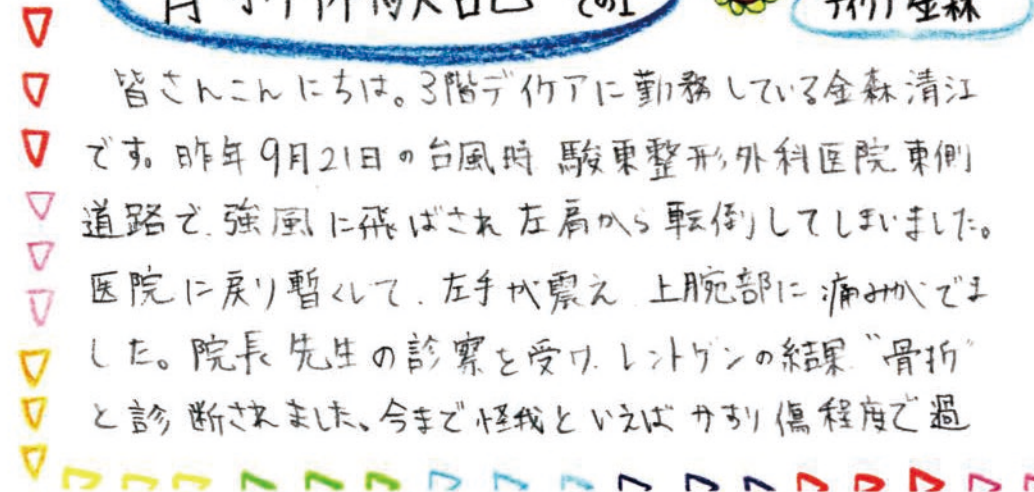 骨折体験記 その1
デイケア 金森
皆さんこんにちは。3階デイケアに勤務している金森清江
です。昨年9月21日の台風時 駿東整形外科医院東側
道路で、強風に飛ばされ左肩から転倒してしまいました。
医院に戻り暫くして、左手が震え、上腕部に痛みがでま
した。院長先生の診察を受け、レントゲンの結果“骨折”
と診断されました。今まで怪我といえばかすり傷程度で過